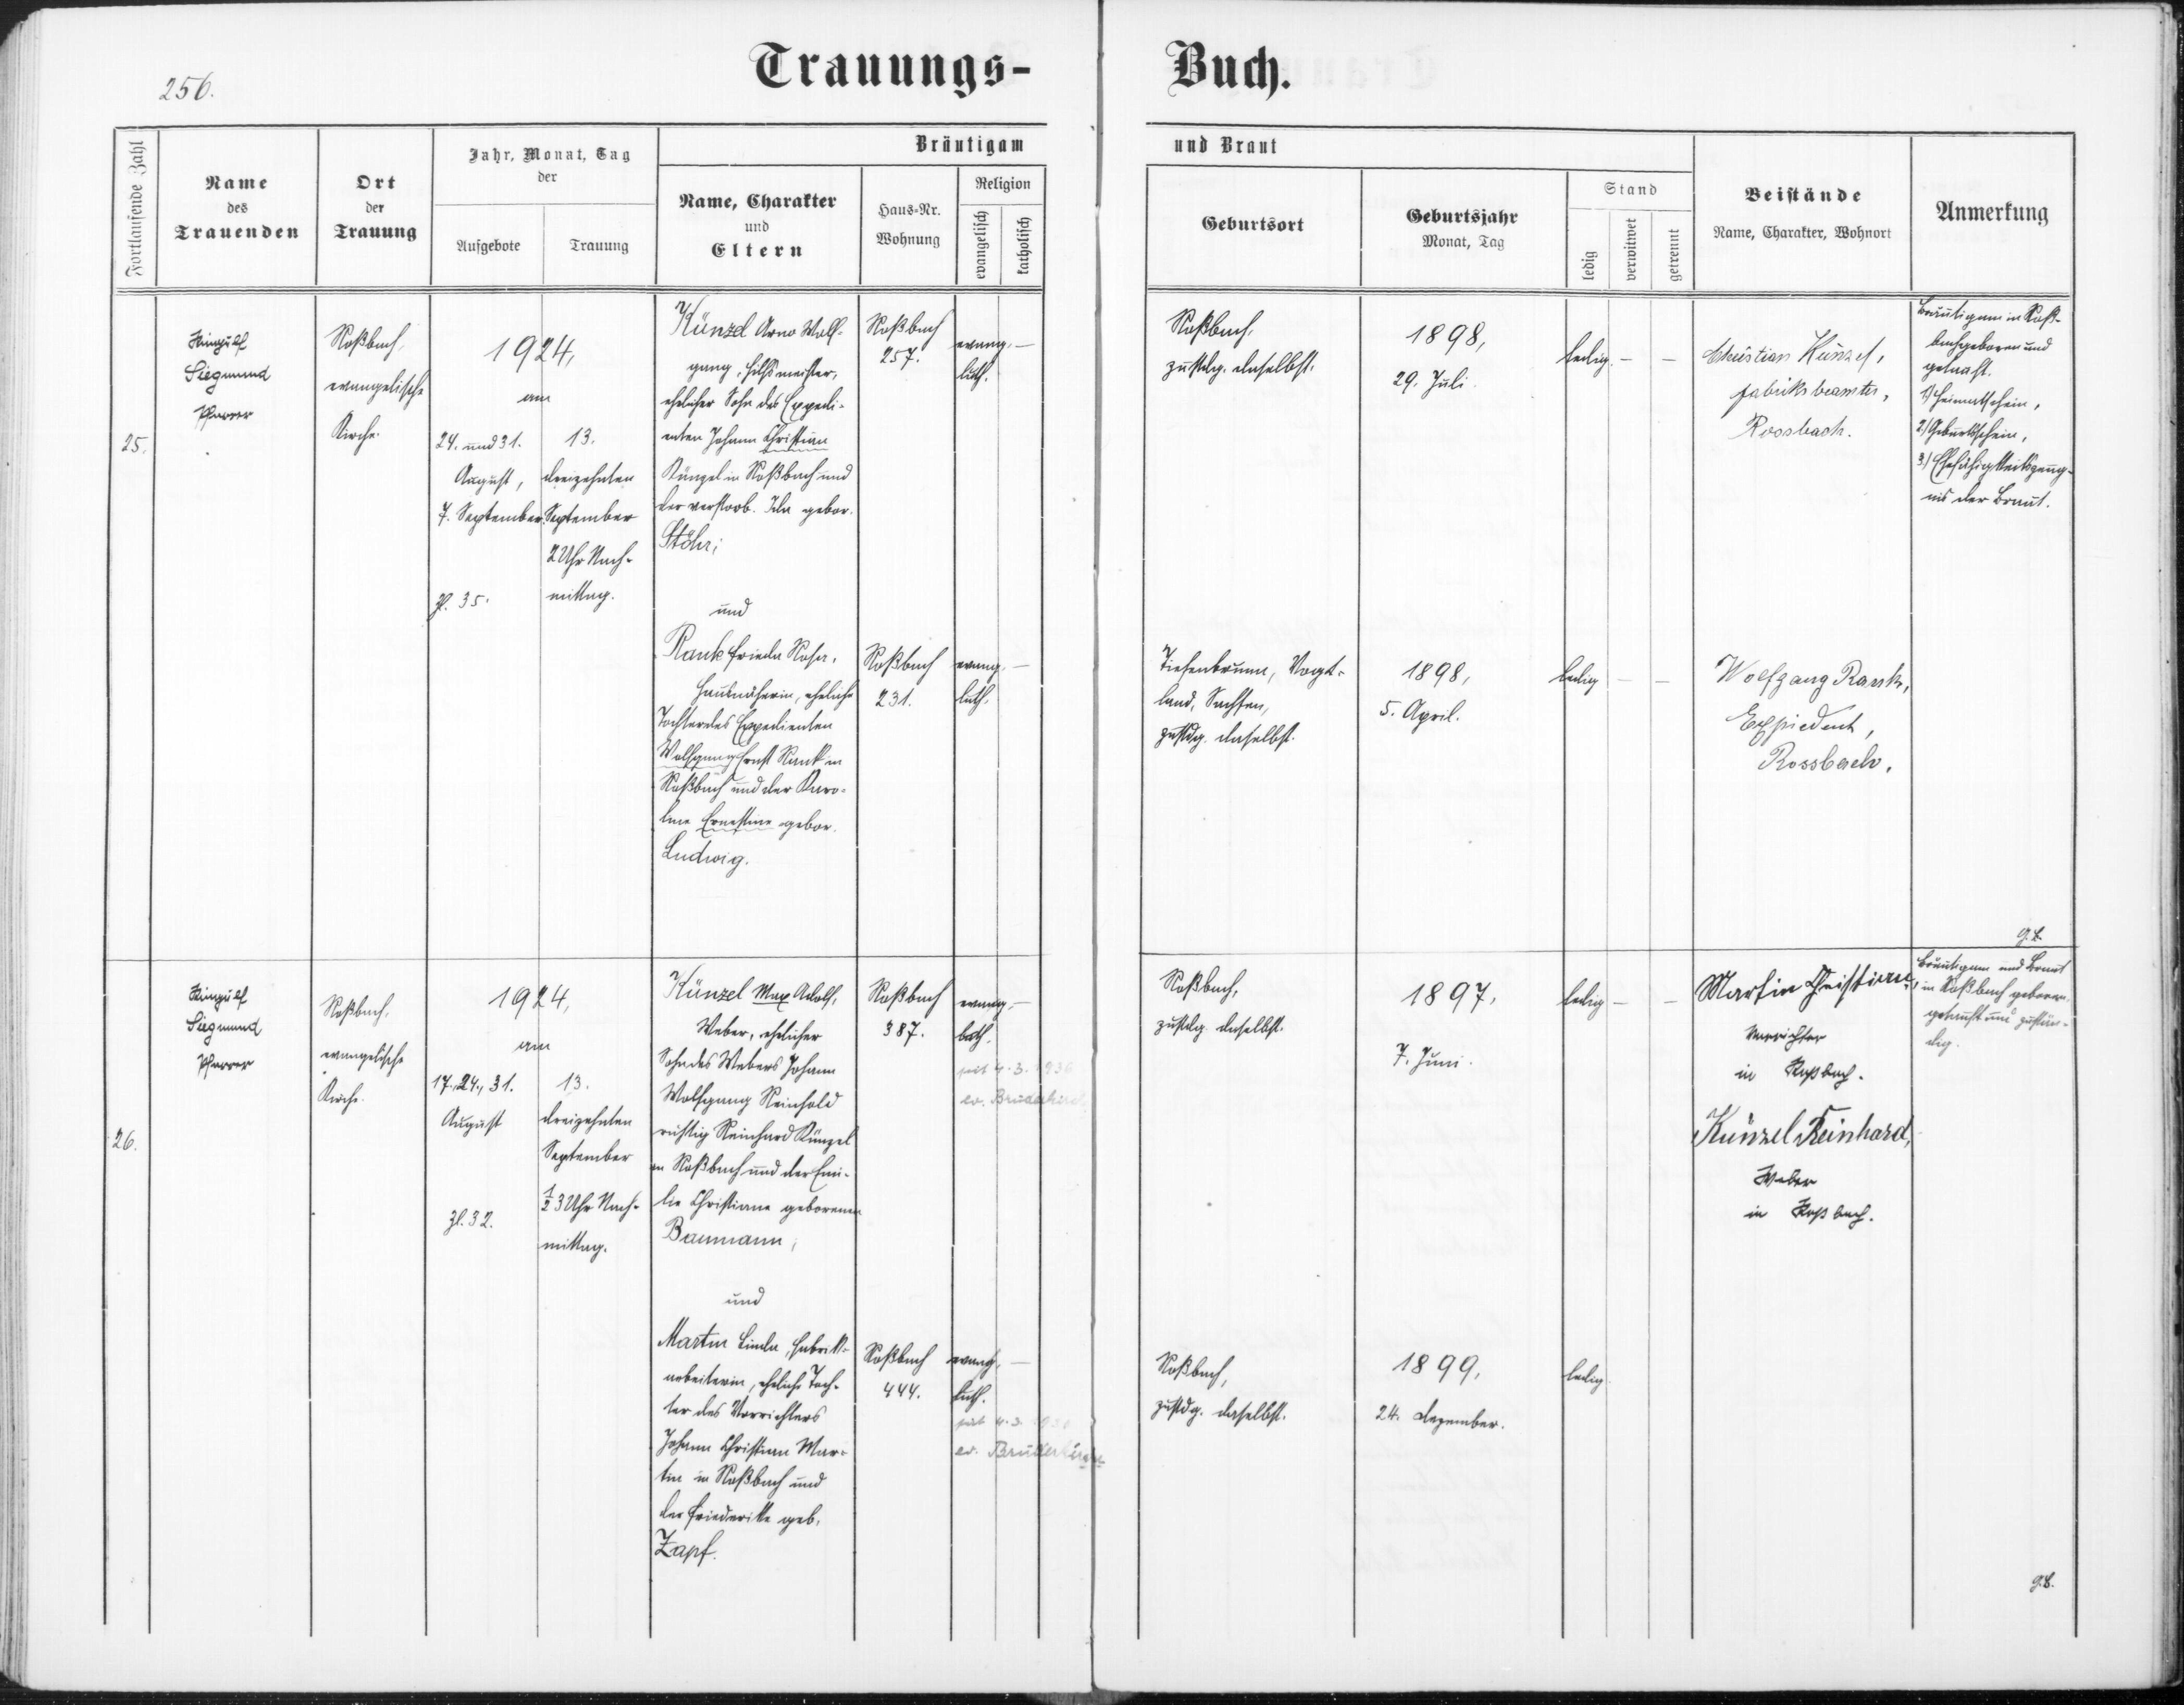 256.
Trauungs-
Buch.
Fortlaufende Zahl
Name
des
Trauenden
Ort
der
Trauung
Jahr, Monat, Tag
der
Aufgebote
Trauung
Bräutigam
Name, Charakter
und
Eltern
Haus-Nr.
Wohnung
Religion
evangelisch
katholisch
und Braut
Geburtsort
Geburtsjahr
Monat, Tag
Stand
ledig
verwitwet
getrennt
Beistände
Name, Charakter, Wohnort
Anmerkung
25.
Siegmund
Pfarrer
Roßbach,
evangelische
Kirche.
1924,
am
24. und 31.
August,
7. September.
Zl. 35.
13.
dreizehnten
September
2 Uhr Nach-
mittag.
Künzel Arno Wolf-
gang, Hilfsmeister,
ehelicher Sohn des Expedi-
enten Johann Christian
Künzel in Roßbach und
der verstorb. Ida gebor.
Stöhr;
und
Rank Frieda Rosa,
Hausnäherin, eheliche
Tochter des Expedienten
Wolfgang Ernst Rank in
Roßbach und der Karo-
line Ernestine gebor.
Ludwig.
Roßbach
257.
evang.
luth.
Roßbach
231.
evang.
luth.
Roßbach,
zustdg. daselbst.
1898,
29. Juli.
ledig. - -
Christian Künzel,
Fabriksbeamter,
Rossbach.
Bräutigam in Roß-
bach geboren und
getauft.
1) Heimatschein,
2.) Geburtsschein,
3.) Ehefähigkeitszeug-
nis der Braut.
Tiefenbrunn, Vogt-
land, Sachsen,
zustdg. daselbst.
1898,
5. April.
ledig - -
Wolfgang Rank,
Expiedent,
Rossbach.
26.
Siegmund
Pfarrer
Roßbach,
evangelische
Kirche.
1924,
am
17., 24., 31.
August
Zl. 32.
13.
dreizehnten
September
½ 3 Uhr Nach-
mittag.
Künzel Max Adolf,
Weber, ehelicher
Sohn des Webers Johann
Wolfgang Reinhold
richtig Reinhard Künzel
in Roßbach und der Emi-
lie Christiane geborenen
Baumann;
und
Martin Linda, Fabrik-
arbeiterin, eheliche Toch-
ter des Vorrichters
Johann Christian Mar-
tin in Roßbach und
der Friederike geb.
Zapf.
Roßbach
387.
evang.
luth.
seit 4.3.1936
ev. Brüderkirche
Roßbach
444.
evang.
luth.
seit 4.3.
ev. Brüderkirche
Roßbach,
zustdg. daselbst.
1897,
7. Juni.
ledig - -
Martin Christian,
Vorrichter
in Roßbach.
Künzel Reinhard,
Weber
in Roßbach.
Bräutigam und Braut
in Roßbach geboren,
getauft und zustän-
dig.
Roßbach,
zustdg. daselbst.
1899,
24. Dezember.
ledig.